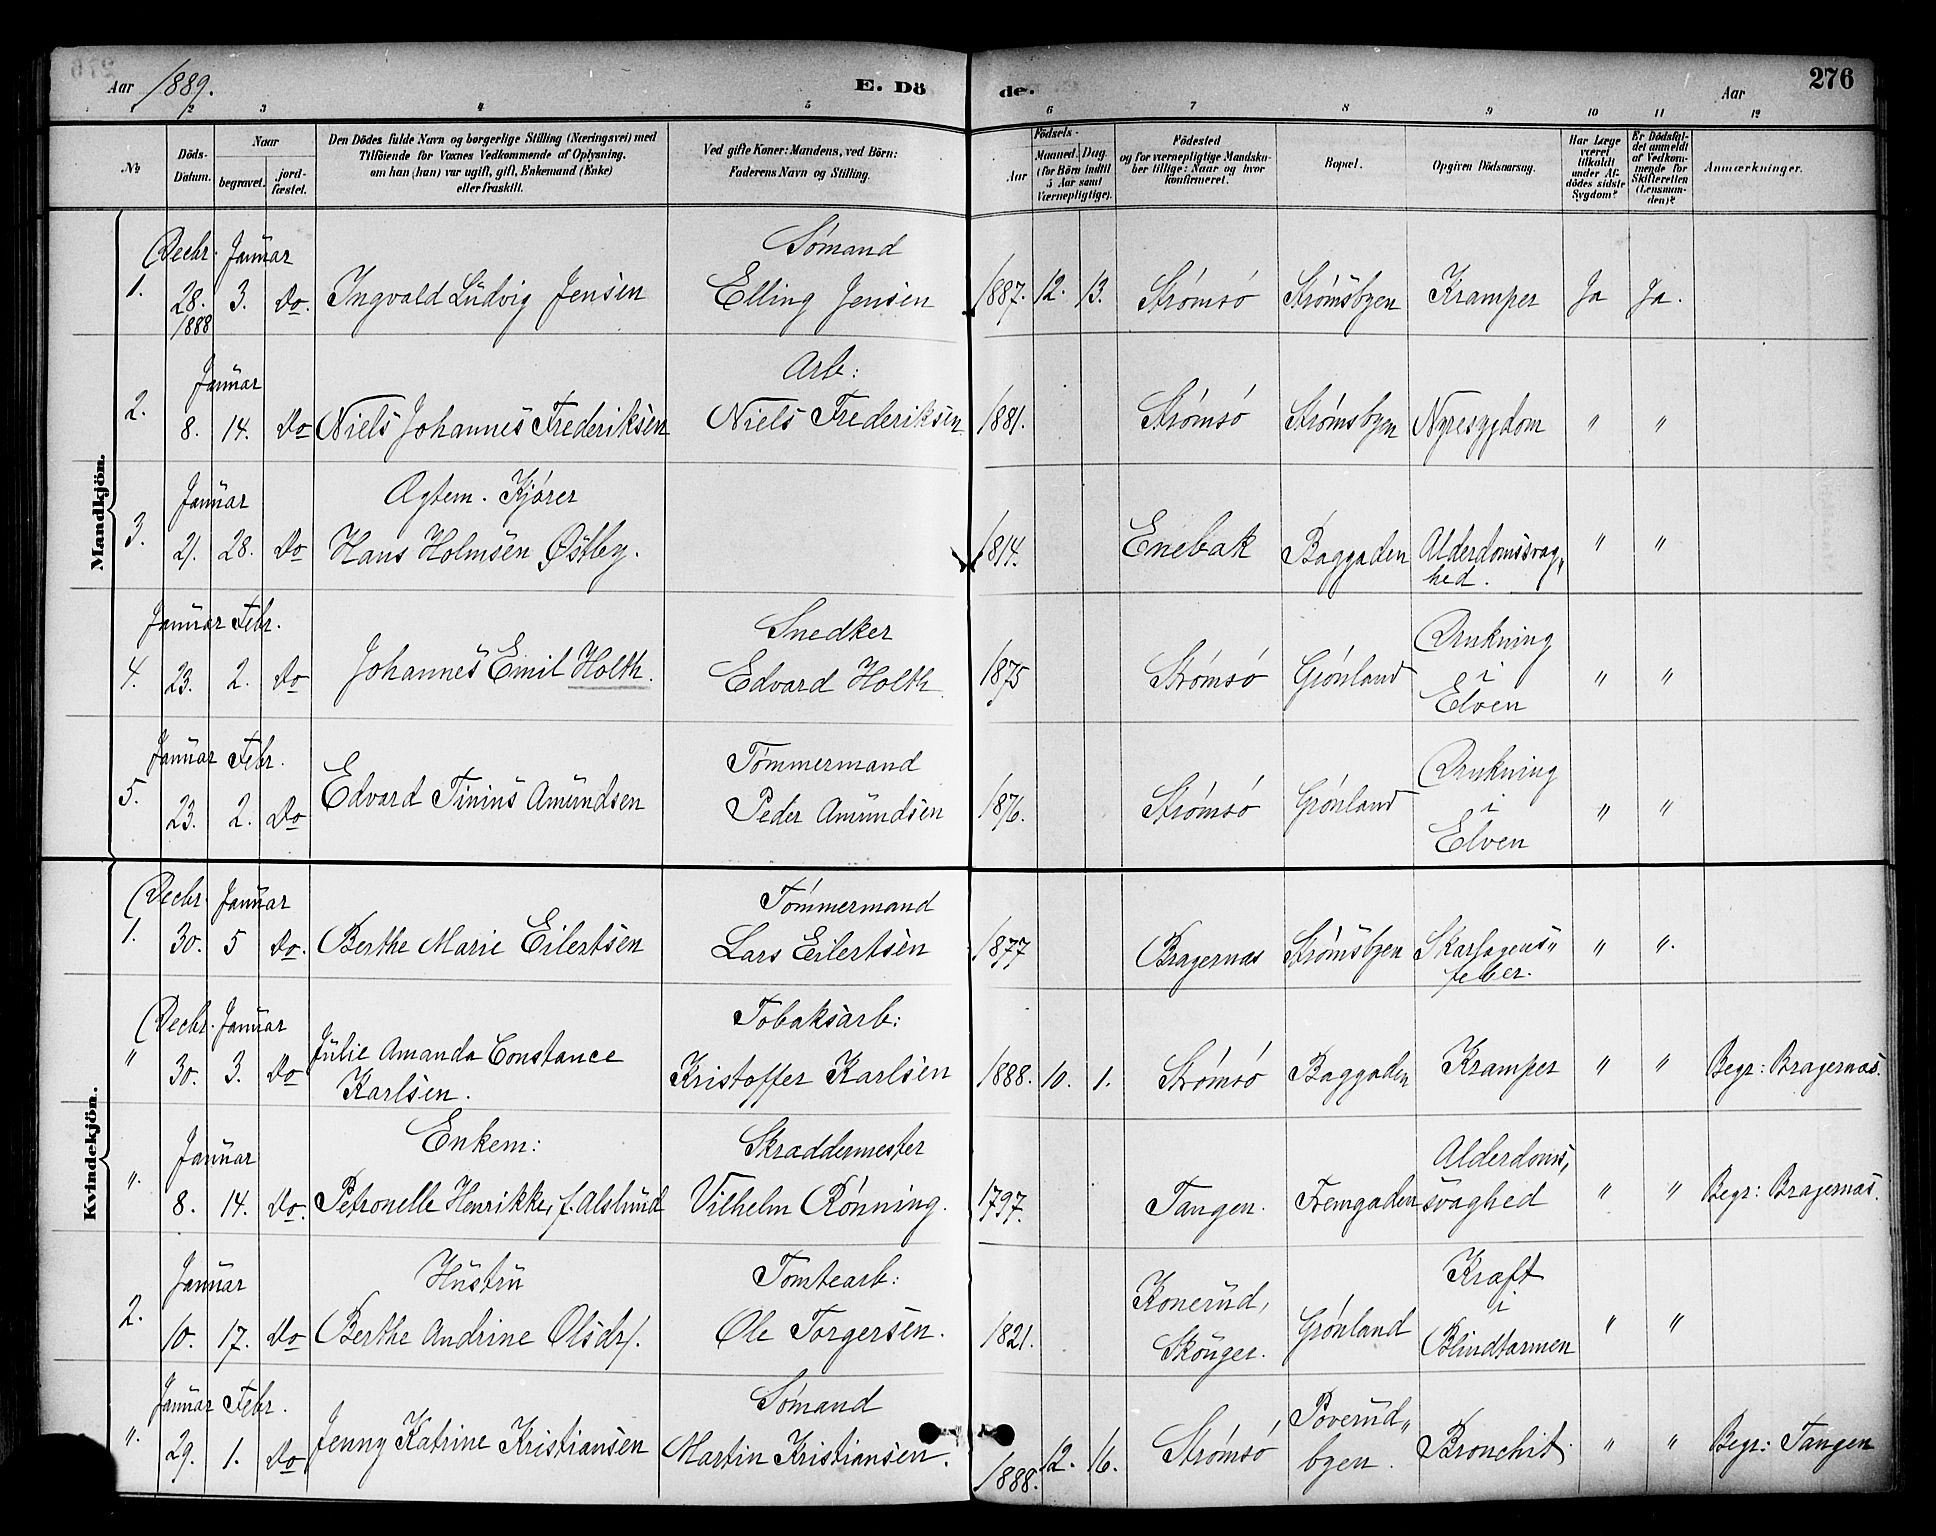 Aar 1889. E. Dö de. Aar 276
1 2 3 4 5 6 7 8 9 10 11 12
No
Döds-Datum.
Naar
begravet.
jord-fæstet.
Den Dödes fulde Navn og borgerlige Stilling (Næringsvei) med
Tilföiende for Voxnes Vedkommende af Oplysning,
om han (hun) var ugift, gift, Enkemand (Enke)
eller fraskilt.
Ved gifte Koner: Mandens, ved Börn:
Faderens Navn og Stilling.
Födsels-
Aar
Maaned. Dag.
(for Börn indtil
5 Aar samt
Værnepligtige).
Födested
og for værnepligtige Mandska-
ber tillige: Naar og hvor
konfirmeret.
Bopæl.
Opgiven Dödsaarsag.
Har Læge
været
tilkaldt
under Af-
dödes sidste
Sygdom?
Er Dödsfal-
det anmeldt
af Vedkom-
mende for
Skifteretten
(Lensman-
den)?
Anmærkninger.
Mandkjön.
Decbr. Januar Sømand
1. 28. 3. Do. Ingvald Ludvig Jensen Elling Jensen 1887. 12. 13. Strømsø Strømsbyen Kramper Ja Ja.
1888
Januar Arb:
2. 8. 14. Do Niels Johannes Frederiksen Niels Frederiksen 1881. Strømsø Strømsbyen Nyresygdom " "
Januar Ægtem. Kjører
3. 21. 28. Do Hans Holmsen Østby. 1814. Enebak Baggaden Alderdomssvag„ " "
hed.
Januar Febr. Snedker Drukning
4. 23. 2. Do Johannes Emil Holth. Edvard Holth 1875 Strømsø Grønland i " "
Elven
Januar Febr. Tømmermand Drukning
5. 23. 2. Do Edvard Tinius Amundsen Peder Amundsen 1876. Strømsø Grønland i " "
Elven
Kvindekjön.
Decbr. Januar Tømmermand
1. 30. 5 Do. Berthe Marie Eilertsen Lars Eilertsen 1877 Bragernæs Strømsbyen Skarlagens„ " "
feber.
Decbr. Januar Tobaksarb:
" 30. 3. Do Julie Amanda Constance Kristoffer Karlsen 1888. 10. 1. Strømsø Baggaden Kramper " " Begr: Bragernæs.
Karlsen.
Januar Enkem: Skræddermester Alderdoms„
" 8. 14. Do. Petronelle Henrikke, f. Alslund Vilhelm Rønning. 1797. Tangen. Fremgaden svaghed " " Begr: Bragernæs.
Januar Hustru Tomtearb: Konerud, Kræft
2. 10. 17. Do Berthe Andrine Olsdr. Ole Torgersen. 1821. Skouger. Grønland i " "
Blindtarmen
Januar Febr. Sømand Poverud„
" 29. 1. Do Jenny Katrine Kristiansen Martin Kristiansen. 1888. 12. 16. Strømsø byen. Bronchit. " " Begr: Tangen